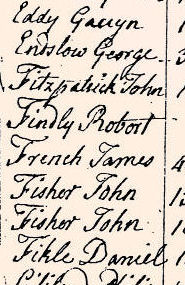 Eddy Gawyn
Endslow George
Fitzpatrick John
Findly Robort
French James 4
Fisher John 1
Fisher John 1
Fikle Daniel